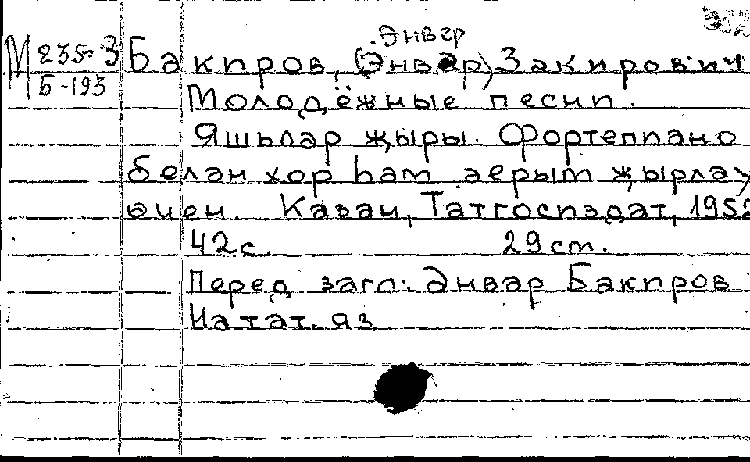 Энвер
М 235-3 Бакиров, (Әнвәр) Закирович
Б-193
Молодёжные песни.
Яшьләр җыры. Фортепиано
белән хор һәм аерым җырлау
өчен. Казан, Татгосиздат, 1952
42 с. 29 см.
Перед загл.: Әнвәр Бакиров
На тат. яз